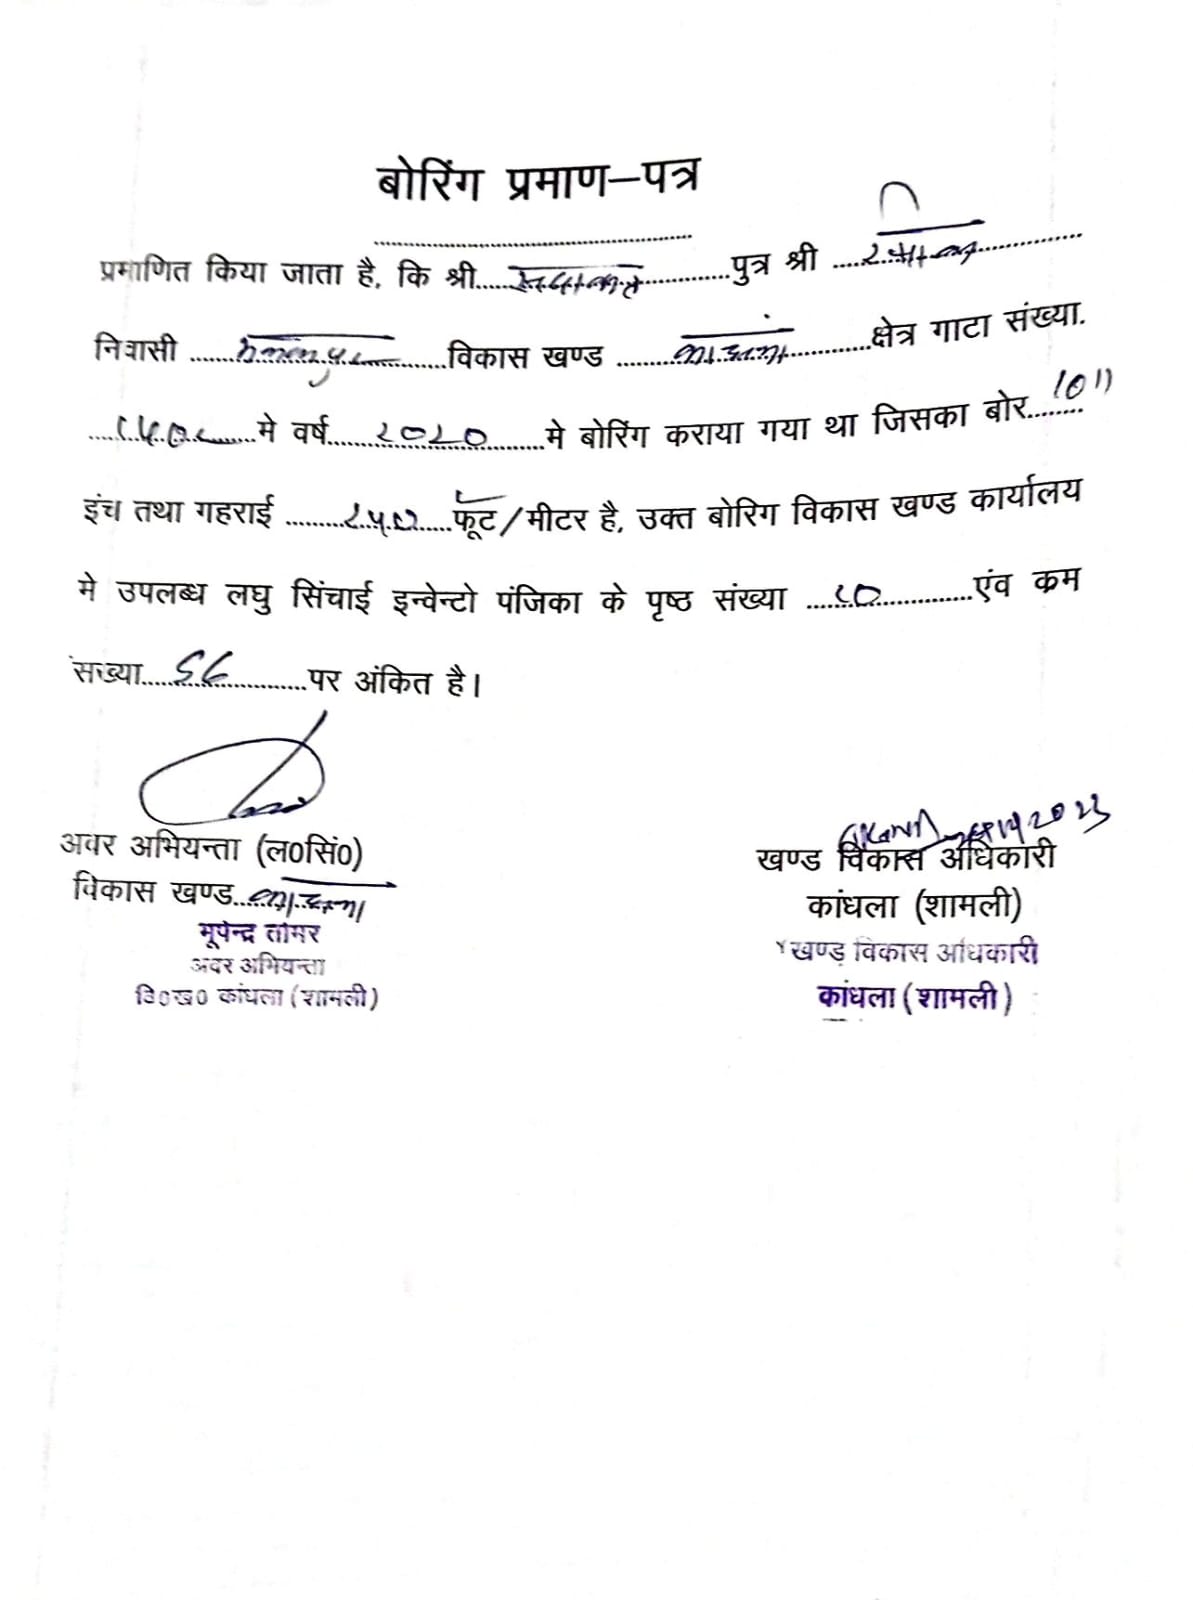 बोरिंग प्रमाण–पत्र
प्रमाणित किया जाता है, कि श्री.....................पुत्र श्री .....................
निवासी .....................विकास खण्ड .....कांधला.....क्षेत्र गाटा संख्या.
.....................मे वर्ष.....2020.....मे बोरिंग कराया गया था जिसका बोर.....10"
इंच तथा गहराई .....250.....फूट/मीटर है, उक्त बोरिग विकास खण्ड कार्यालय
मे उपलब्ध लघु सिंचाई इन्वेन्टो पंजिका के पृष्ठ संख्या .....................एंव क्रम
संख्या.....56.....पर अंकित है।
अवर अभियन्ता (ल0सिं0)
विकास खण्ड.....कांधला
भूपेन्द्र तोमर
अवर अभियन्ता
वि0ख0 कांधला (शामली)
2023
खण्ड विकास अधिकारी
कांधला (शामली)
खण्ड विकास अधिकारी
कांधला (शामली)